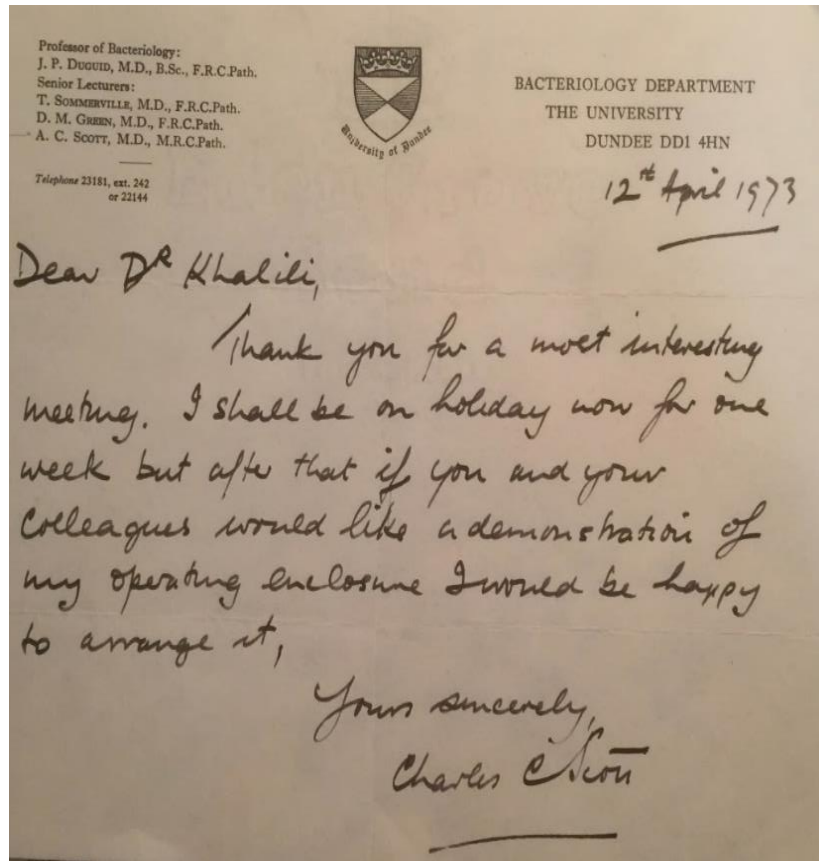 Professor of Bacteriology:
J. P. DUGUID, M.D., B.Sc., F.R.C.Path.
Senior Lecturers:
T. SOMMERVILLE, M.D., F.R.C.Path.
D. M. GREEN, M.D., F.R.C.Path.
A. C. SCOTT, M.D., M.R.C.Path.
Telephone 23181, ext. 242
or 22144
University of Dundee
BACTERIOLOGY DEPARTMENT
THE UNIVERSITY
DUNDEE DD1 4HN
12th April 1973
Dear DR Khalili,
Thank you for a most interesting
meeting. I shall be on holiday now for one
week but after that if you and your
colleagues would like a demonstration of
my operating enclosure I would be happy
to arrange it,
Yours sincerely,
Charles C Scott